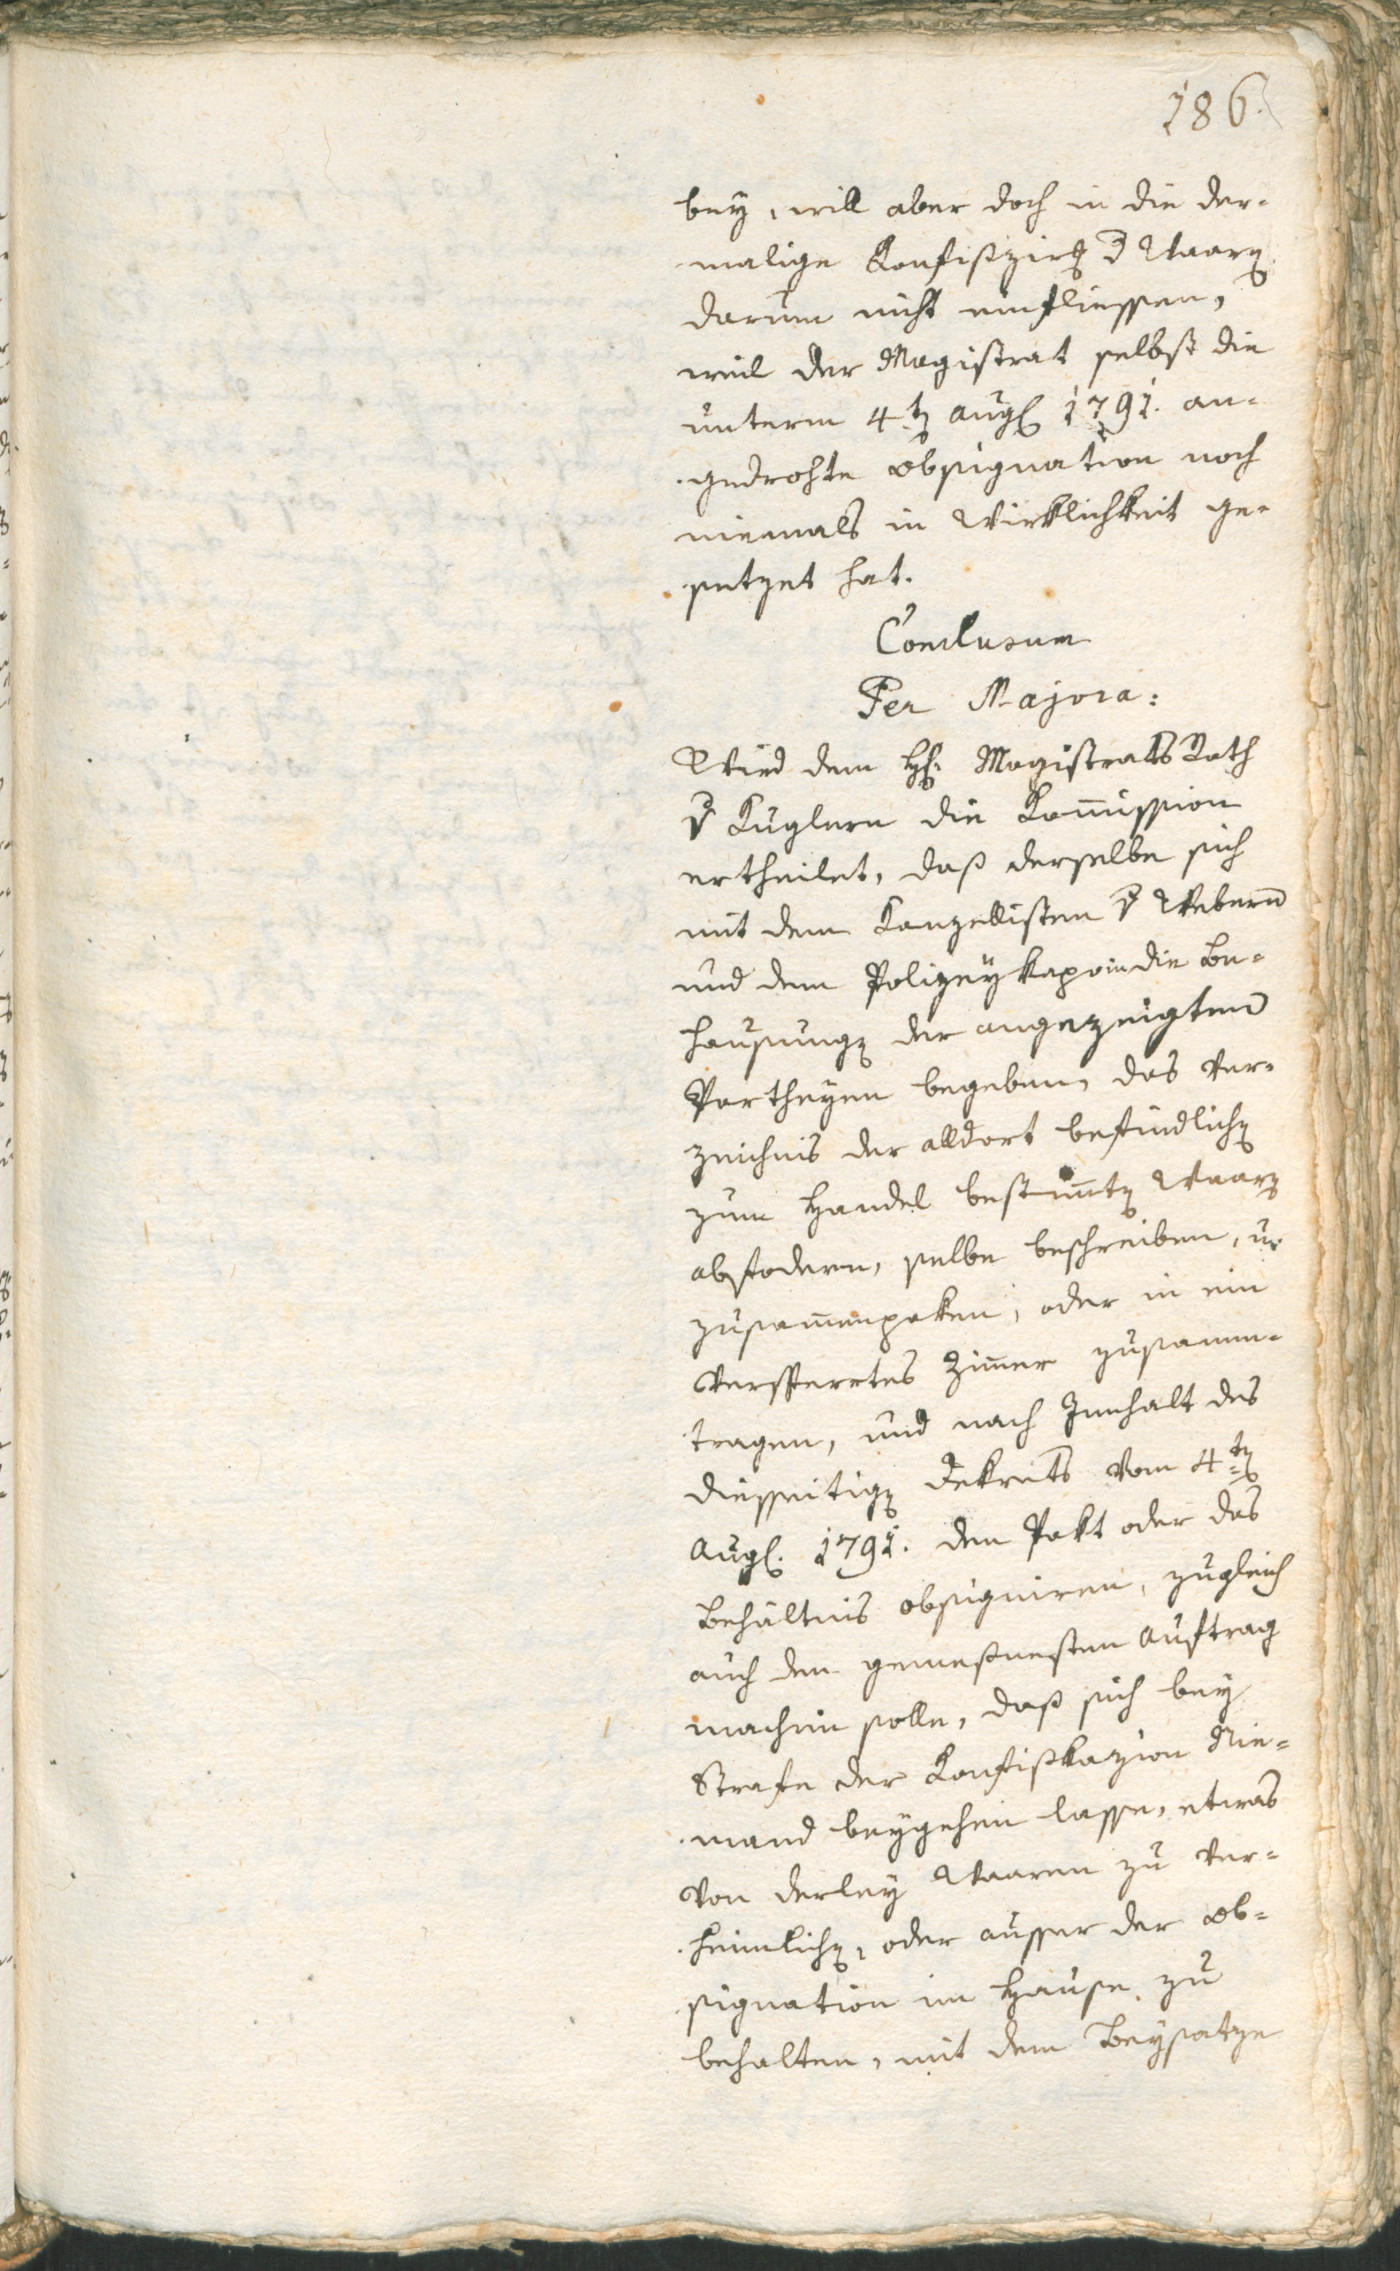 186.
bey, will aber doch in die der-
malige Konfiszirg d Waarn
darum nicht einfliessen,
weil der Magistrat selbst die
unterm 4tn Augl 1791. an-
gedrohte Obsignation noch
niemals in Wirklichkeit ge-
setzet hat.
Conclusum
Per Majora:
Wird dem H: Magistrats Rath
v Kuglern die Kom̄ission
ertheilet, daß derselbe sich
mit dem Kanzellisten v Webern
und dem Polizey in die Be-
hausungn der angezeigten
Partheyen begeben, das Ver-
zeichnis der alldort befindlichn
zum Handel bestim̄tn Waarn
abfodern, selbe beschreiben, u.
zusam̄enpaken, oder in ein
versperrtes Zim̄er zusamm-
tragen, und nach Innhalt des
diesseitign Dekrets vom 4tn
Augl. 1791. den Pakt oder das
Behältnis obsigniren, zugleich
auch den gemeßnesten Auftrag
machen solle, daß sich bey
Strafe der Konfiskazion Nie-
mand beygehen lasse, etwas
von derley Waaren zu ver-
heimlichn, oder ausser der Ob-
signation im Hause zu
behalten, mit dem Beysatze